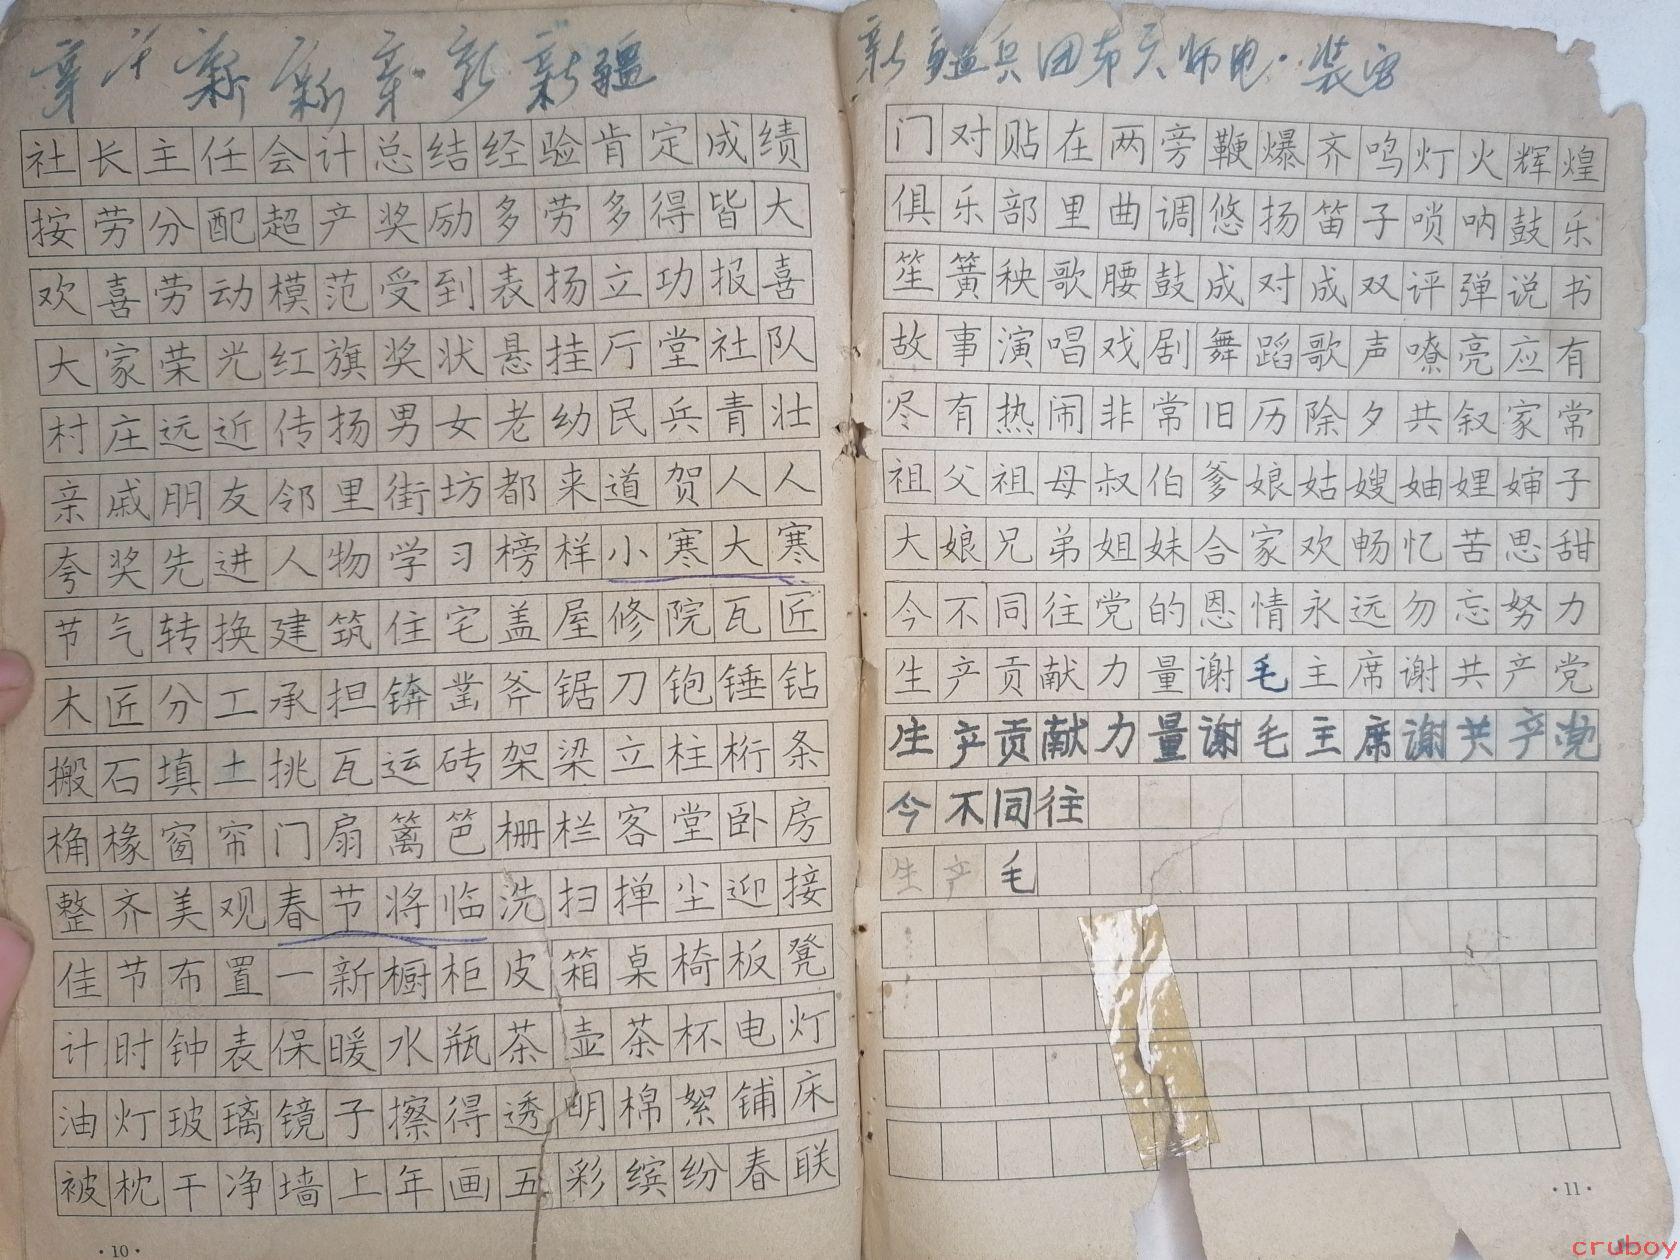 新 新 新 新疆
社长主任会计总结经验肯定成绩
按劳分配超产奖励多劳多得皆大
欢喜劳动模范受到表扬立功报喜
大家荣光红旗奖状悬挂厅堂社队
村庄远近传扬男女老幼民兵青壮
亲戚朋友邻里街坊都来道贺人人
夸奖先进人物学习榜样小寒大寒
节气转换建筑住宅盖屋修院瓦匠
木匠分工承担锛凿斧锯刀铇锤钻
搬石填土挑瓦运砖架梁立柱桁条
桷椽窗帘门扇篱笆栅栏客堂卧房
整齐美观春节将临洗扫掸尘迎接
佳节布置一新橱柜皮箱桌椅板凳
计时钟表保暖水瓶茶壶茶杯电灯
油灯玻璃镜子擦得透明棉絮铺床
被枕干净墙上年画五彩缤纷春联
·10·
新疆兵团农六师电·装
门对贴在两旁鞭爆齐鸣灯火辉煌
俱乐部里曲调悠扬笛子唢呐鼓乐
笙簧秧歌腰鼓成对成双评弹说书
故事演唱戏剧舞蹈歌声嘹亮应有
尽有热闹非常旧历除夕共叙家常
祖父祖母叔伯爹娘姑嫂妯娌婶子
大娘兄弟姐妹合家欢畅忆苦思甜
今不同往党的恩情永远勿忘努力
生产贡献力量谢毛主席谢共产党
生产贡献力量谢毛主席谢共产党
今不同往
生产毛
·11·
cruboy